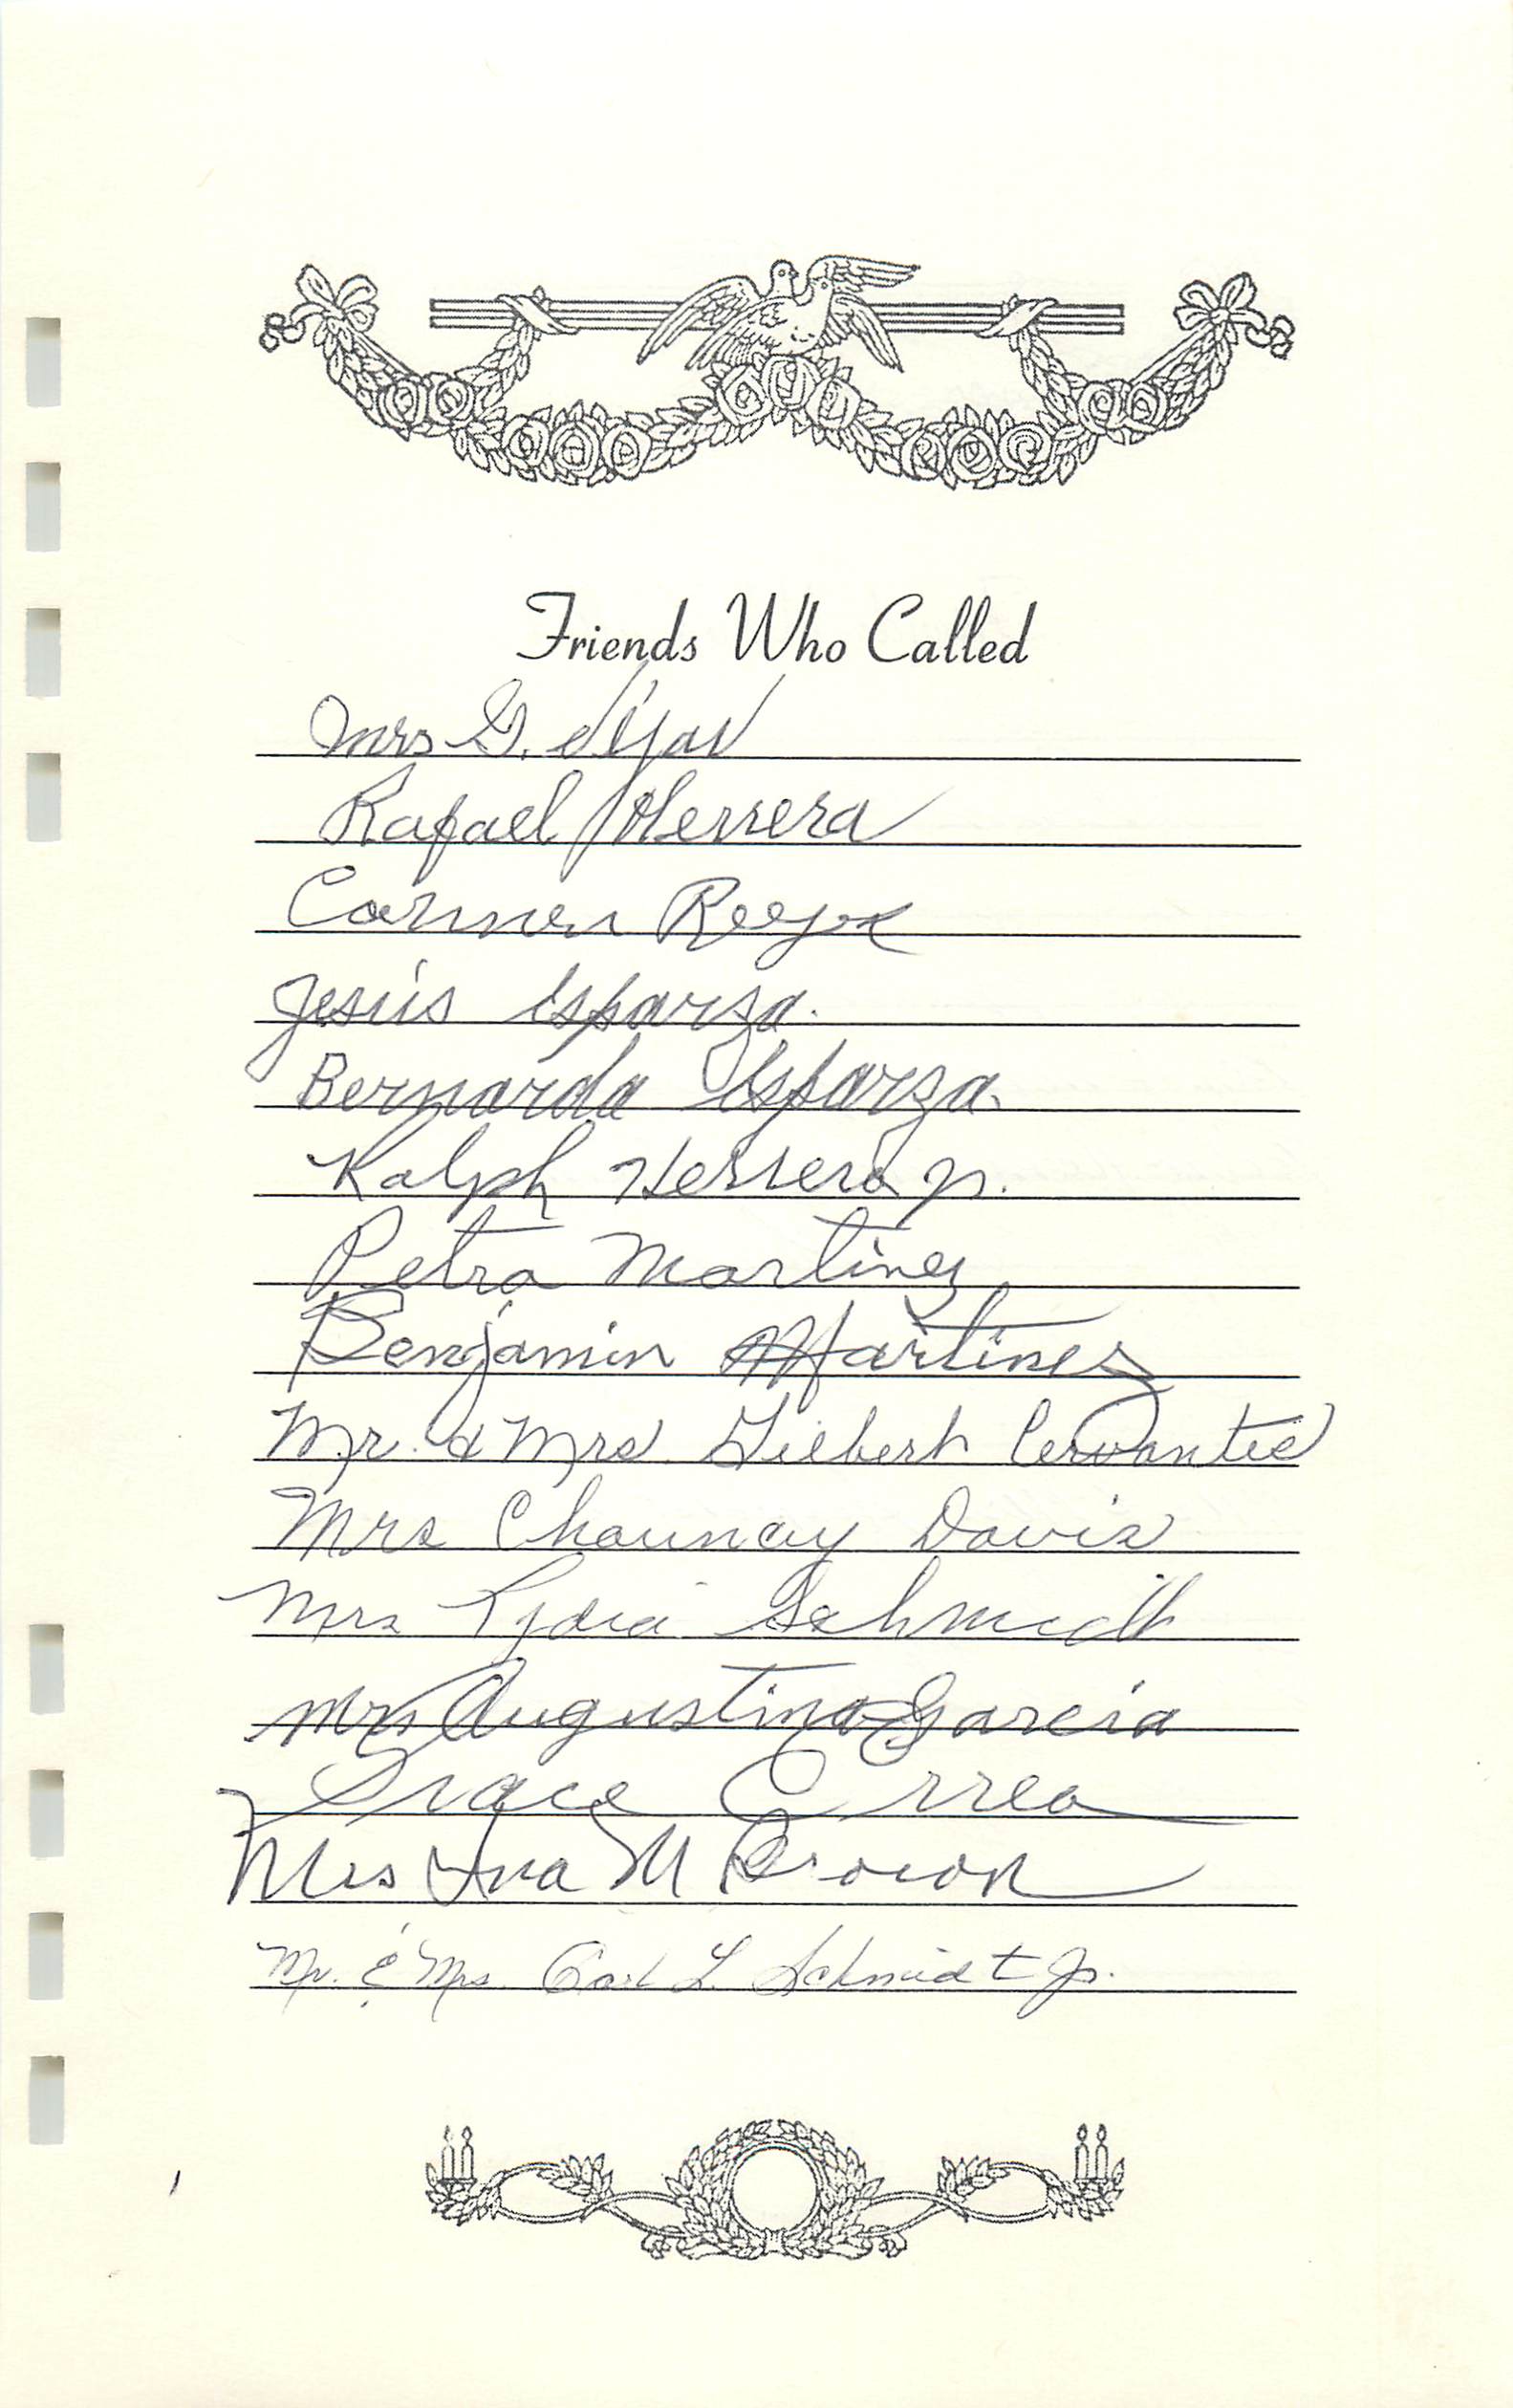 Friends Who Called
Mrs G.
Rafael Herrera
Carmen
Jesús Esparza.
Bernarda Esparza.
Ralph Herrera Jr.
Petra Martinez
Benjamin Martinez
Mr. & Mrs. Gilbert Cervantes
Mrs Chauncey Davis
Mrs Lydia Schmidt
Mrs Augustina Garcia
Grace Correa
Mrs Ava M Brown
Mr. & Mrs. Carl L. Schmidt Jr.